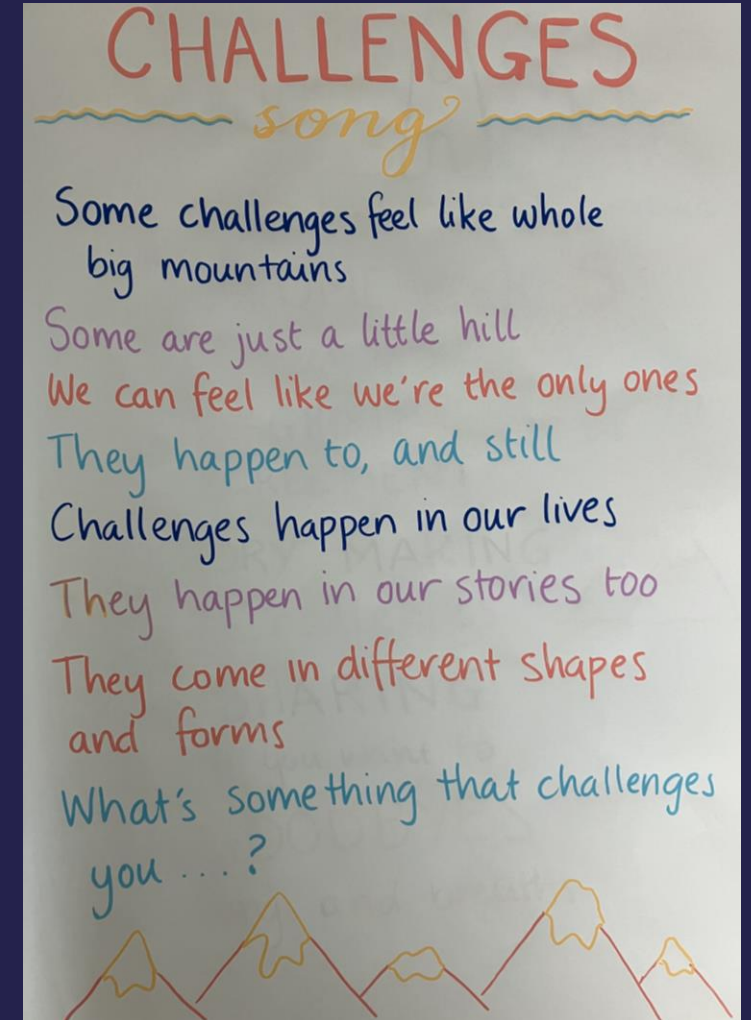 CHALLENGES
song
Some challenges feel like whole
big mountains
Some are just a little hill
We can feel like we're the only ones
They happen to, and still
Challenges happen in our lives
They happen in our stories too
They come in different shapes
and forms
What's something that challenges
you ...?